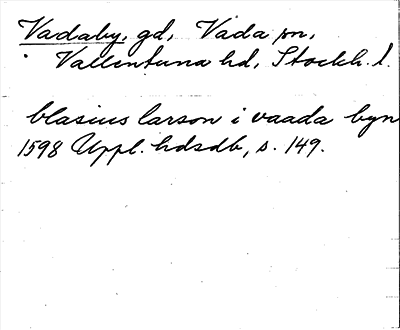 Vadaby, gd, Vada sn,
Vallentuna hd, Stockh. l.
blasius larson i vaada byn
1598 Uppl. hdsdb, s. 149.